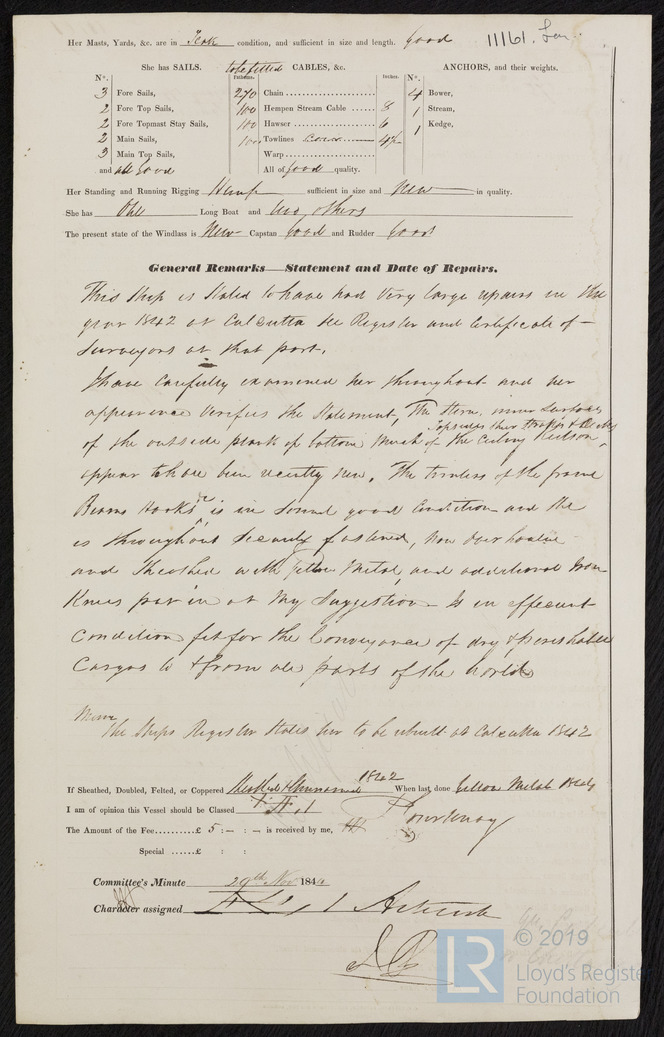 Her Masts, Yards, &c. are in Teak condition, and sufficient in size and length. Good
11161. Lon
She has SAILS. to be fitted CABLES, &c. ANCHORS, and their weights.
N°. Fathoms. Inches. N°.
3 Fore Sails, 270 Chain 4 Bower,
2 Fore Top Sails, 100 Hempen Stream Cable 8 1 Stream,
2 Fore Topmast Stay Sails, 100 Hawser 6 1 Kedge,
2 Main Sails, 100 Towlines 4½
3 Main Top Sails, Warp
and all Good All of good quality.
Her Standing and Running Rigging Hemp sufficient in size and New in quality.
She has One Long Boat and two others
The present state of the Windlass is New Capstan Good and Rudder Good
General Remarks—Statement and Date of Repairs.
This Ship is Stated to have had Very large repairs in the
year 1842 at Calcutta See Register and Certificate of
Surveyors at that port.
I have Carefully examined her throughout and her
appearance Verifies the Statement, The Stern, inner Surfaces
Topsides
of the outside plank of bottom Much of the Ceiling Kelson,
appear to have been recently New. The timbers of the frame
Beams Hooks &c is in Sound good Condition and She
is throughout Securely fastened, Now Over hauled
and Sheathed with Yellow Metal, and additional Iron
Knees put in at My Suggestion Is in efficient
Condition fit for the Conveyance of dry & perishable
Cargos to & from all parts of the World
Mem
The Ships Register States her to be rebuilt at Calcutta 1842
If Sheathed, Doubled, Felted, or Coppered 1842 When last done Yellow Metal 1844
I am of opinion this Vessel should be Classed 1
The Amount of the Fee £ 5 : – : – is received by me, Courtenay
Special £ : :
Committee's Minute 29th Nov 1844
Character assigned 1
© 2019
LR
Lloyd's Register
Foundation